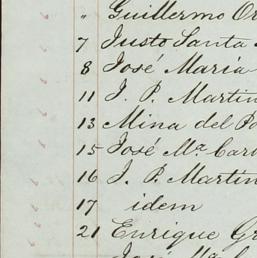 " Guillermo Or
7 Justo Santa
8 José María
11 J. P. Martin
13 Mina del Po
15 José Mª. Car
16 J. P. Martin
17 idem
21 Enrique Gr
José Mª